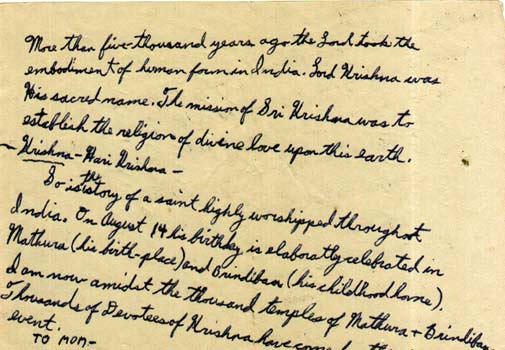 More than five-thousand years ago the Lord took the
embodiment of human form in India. Lord Krishna was
His sacred name. The mission of Sri Krishna was to
establish the religion of divine love upon this earth.
– Krishna – Hari Krishna –
So is the story of a saint highly worshipped throughout
India. On August 14 his birthday is elaboratly celebrated in
Mathura (his birth-place) and Brindiban (his childhood home).
I am now amidst the thousand temples of Mathura + Brindiban
Thousands of Devotees of Krishna have come
event.
TO MOM–